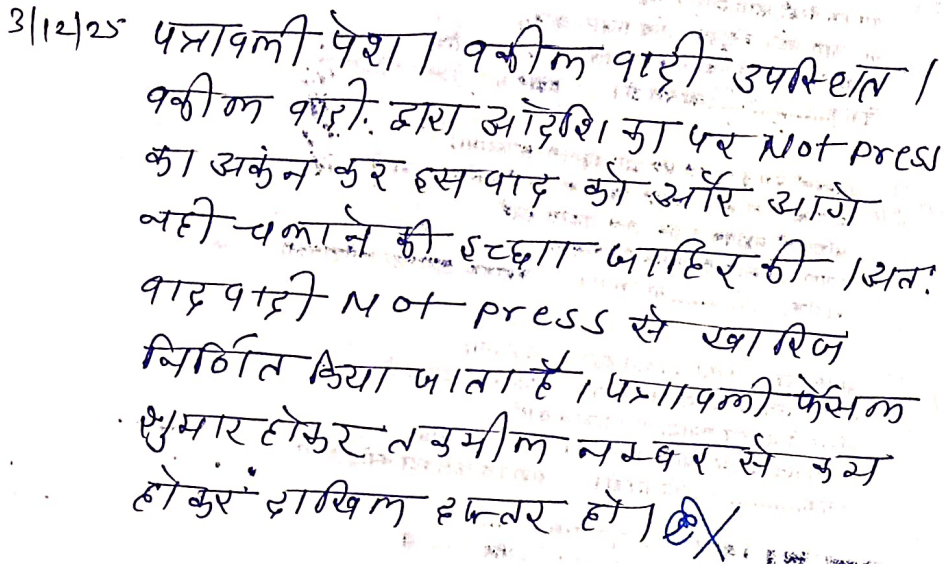 3/12/25 पत्रावली पेश। वकील वादी उपस्थित।
वकील वादी द्वारा आदेशिका पर Not press
का अकंन कर इस वाद को और आगे
नही चलाने की इच्छा जाहिर की। अतः
वाद वादी Not press से खारिज
निर्णित किया जाता है। पत्रावली फेसल
शुमार होकर तकमील नम्बर से कम
होकर दाखिल दफ्तर हो।